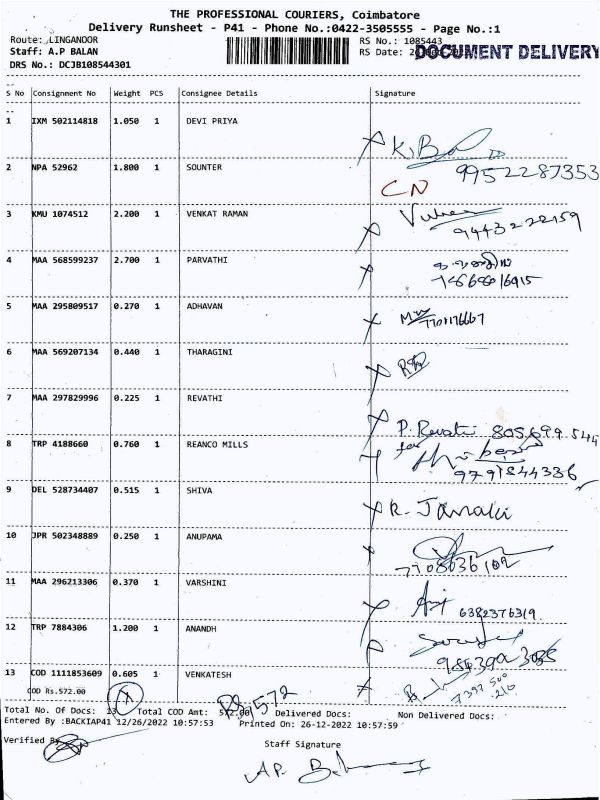 THE PROFESSIONAL COURIERS, Coimbatore
Delivery Runsheet - P41 - Phone No.:0422-3505555 - Page No.:1
Route: LINGANOOR
RS No.: 1085443
Staff: A.P BALAN
RS Date:
DOCUMENT DELIVERY
DRS No.: DCJB108544301
S No Consignment No Weight PCS Consignee Details Signature
1 IXM 502114818 1.050 1 DEVI PRIYA
2 NPA 52962 1.800 1 SOUNTER
9952287353
CN
3 KMU 1074512 2.200 1 VENKAT RAMAN
9443222159
4 MAA 568599237 2.700 1 PARVATHI
5 MAA 295809517 0.270 1 ADHAVAN
6 MAA 569207134 0.440 1 THARAGINI
7 MAA 297829996 0.225 1 REVATHI
P. Revati 805699 544
8 TRP 4188660 0.760 1 REANCO MILLS
for
9791844336
9 DEL 528734407 0.515 1 SHIVA
R. Janaki
10 JPR 502348889 0.250 1 ANUPAMA
7708036102
11 MAA 296213306 0.370 1 VARSHINI
6382376319
12 TRP 7884306 1.200 1 ANANDH
13 COD 1111853609 0.605 1 VENKATESH
COD Rs.572.00
Rs.572
Total No. Of Docs: 13 Total COD Amt: 572.00 Delivered Docs: Non Delivered Docs:
Entered By :BACKIAP41 12/26/2022 10:57:53 Printed On: 26-12-2022 10:57:59
Verified By
Staff Signature
A.P.